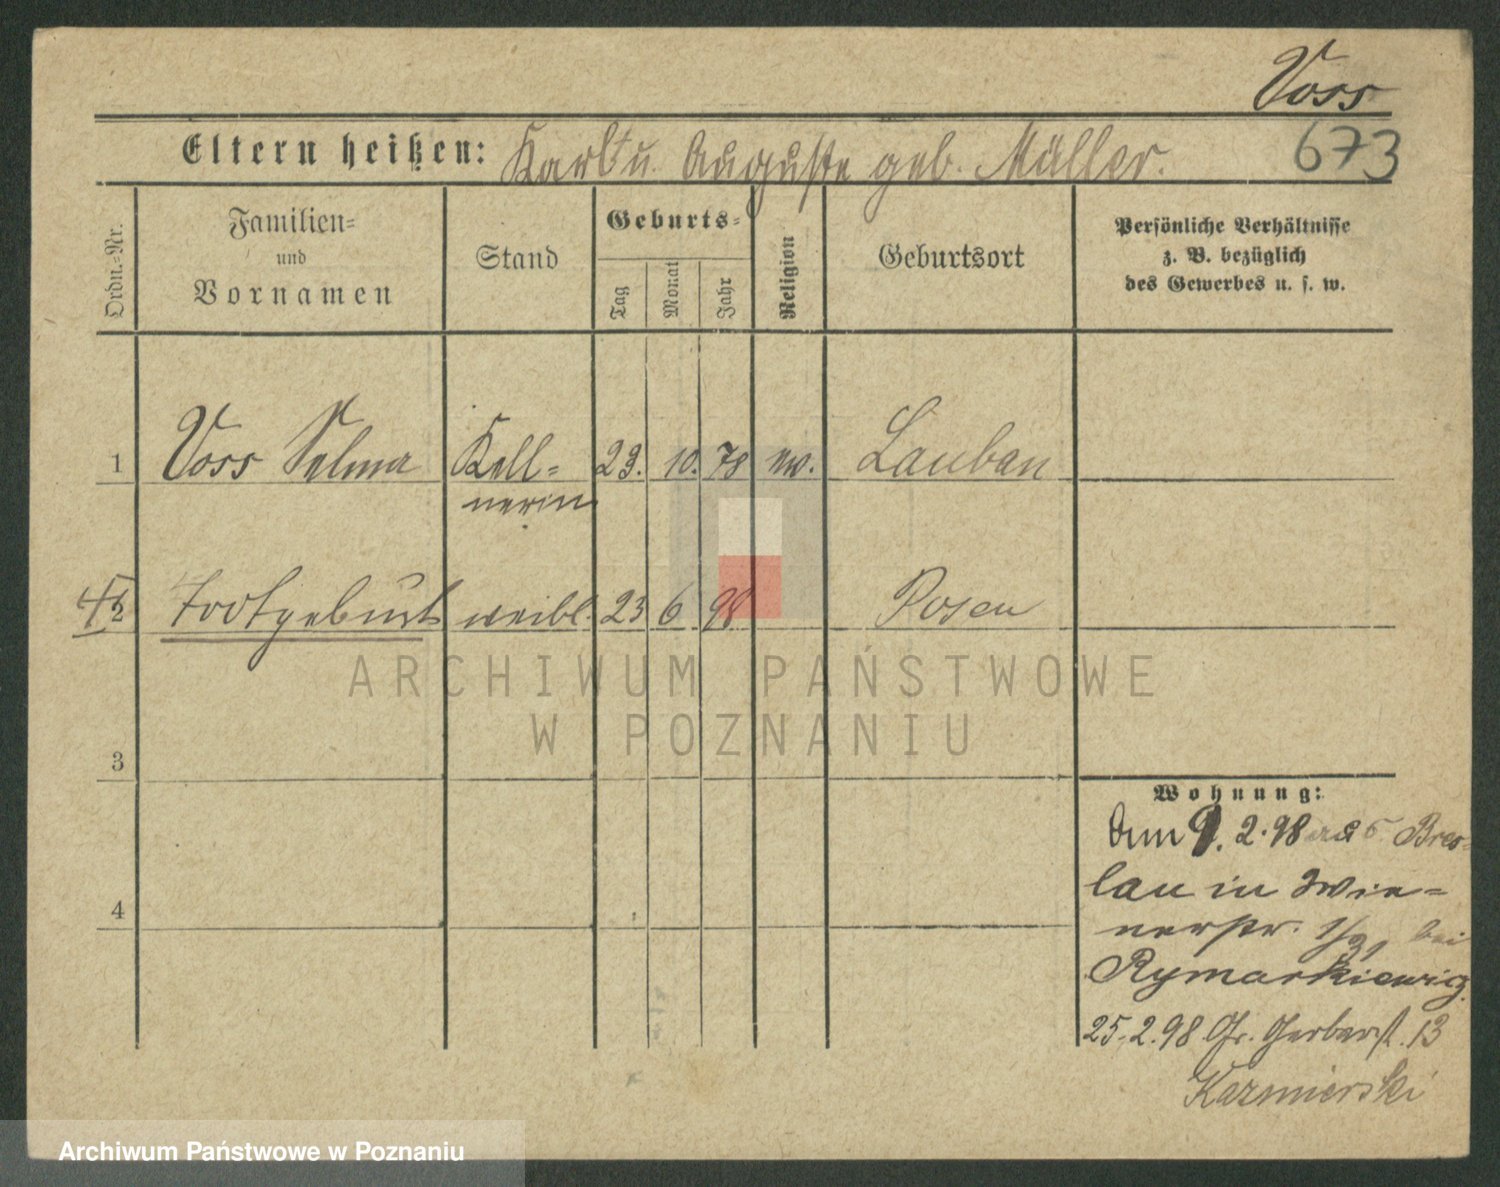 Voss
673
Eltern heißen: Karl u. Auguste geb. Müller.
Ordn.-Nr.
Familien-
und
Vornamen
Stand
Geburts-
Tag
Monat
Jahr
Religion
Geburtsort
Persönliche Verhältnisse
z. B. bezüglich
des Gewerbes u. s. w.
1 Voss Selma Kell- 23. 10. 78 ev. Lauban
nerin
2 Todtgeburt weibl. 23 6 98 Posen
ARCHIWUM PAŃSTWOWE
W POZNANIU
3
Wohnung:
Am 9. 2. 98 aus Bres-
4
lau in Wie-
nerstr. bei
Rymarkiewicz.
25. 2. 98 Gr. Gerberst. 13
Kazmierski
Archiwum Państwowe w Poznaniu